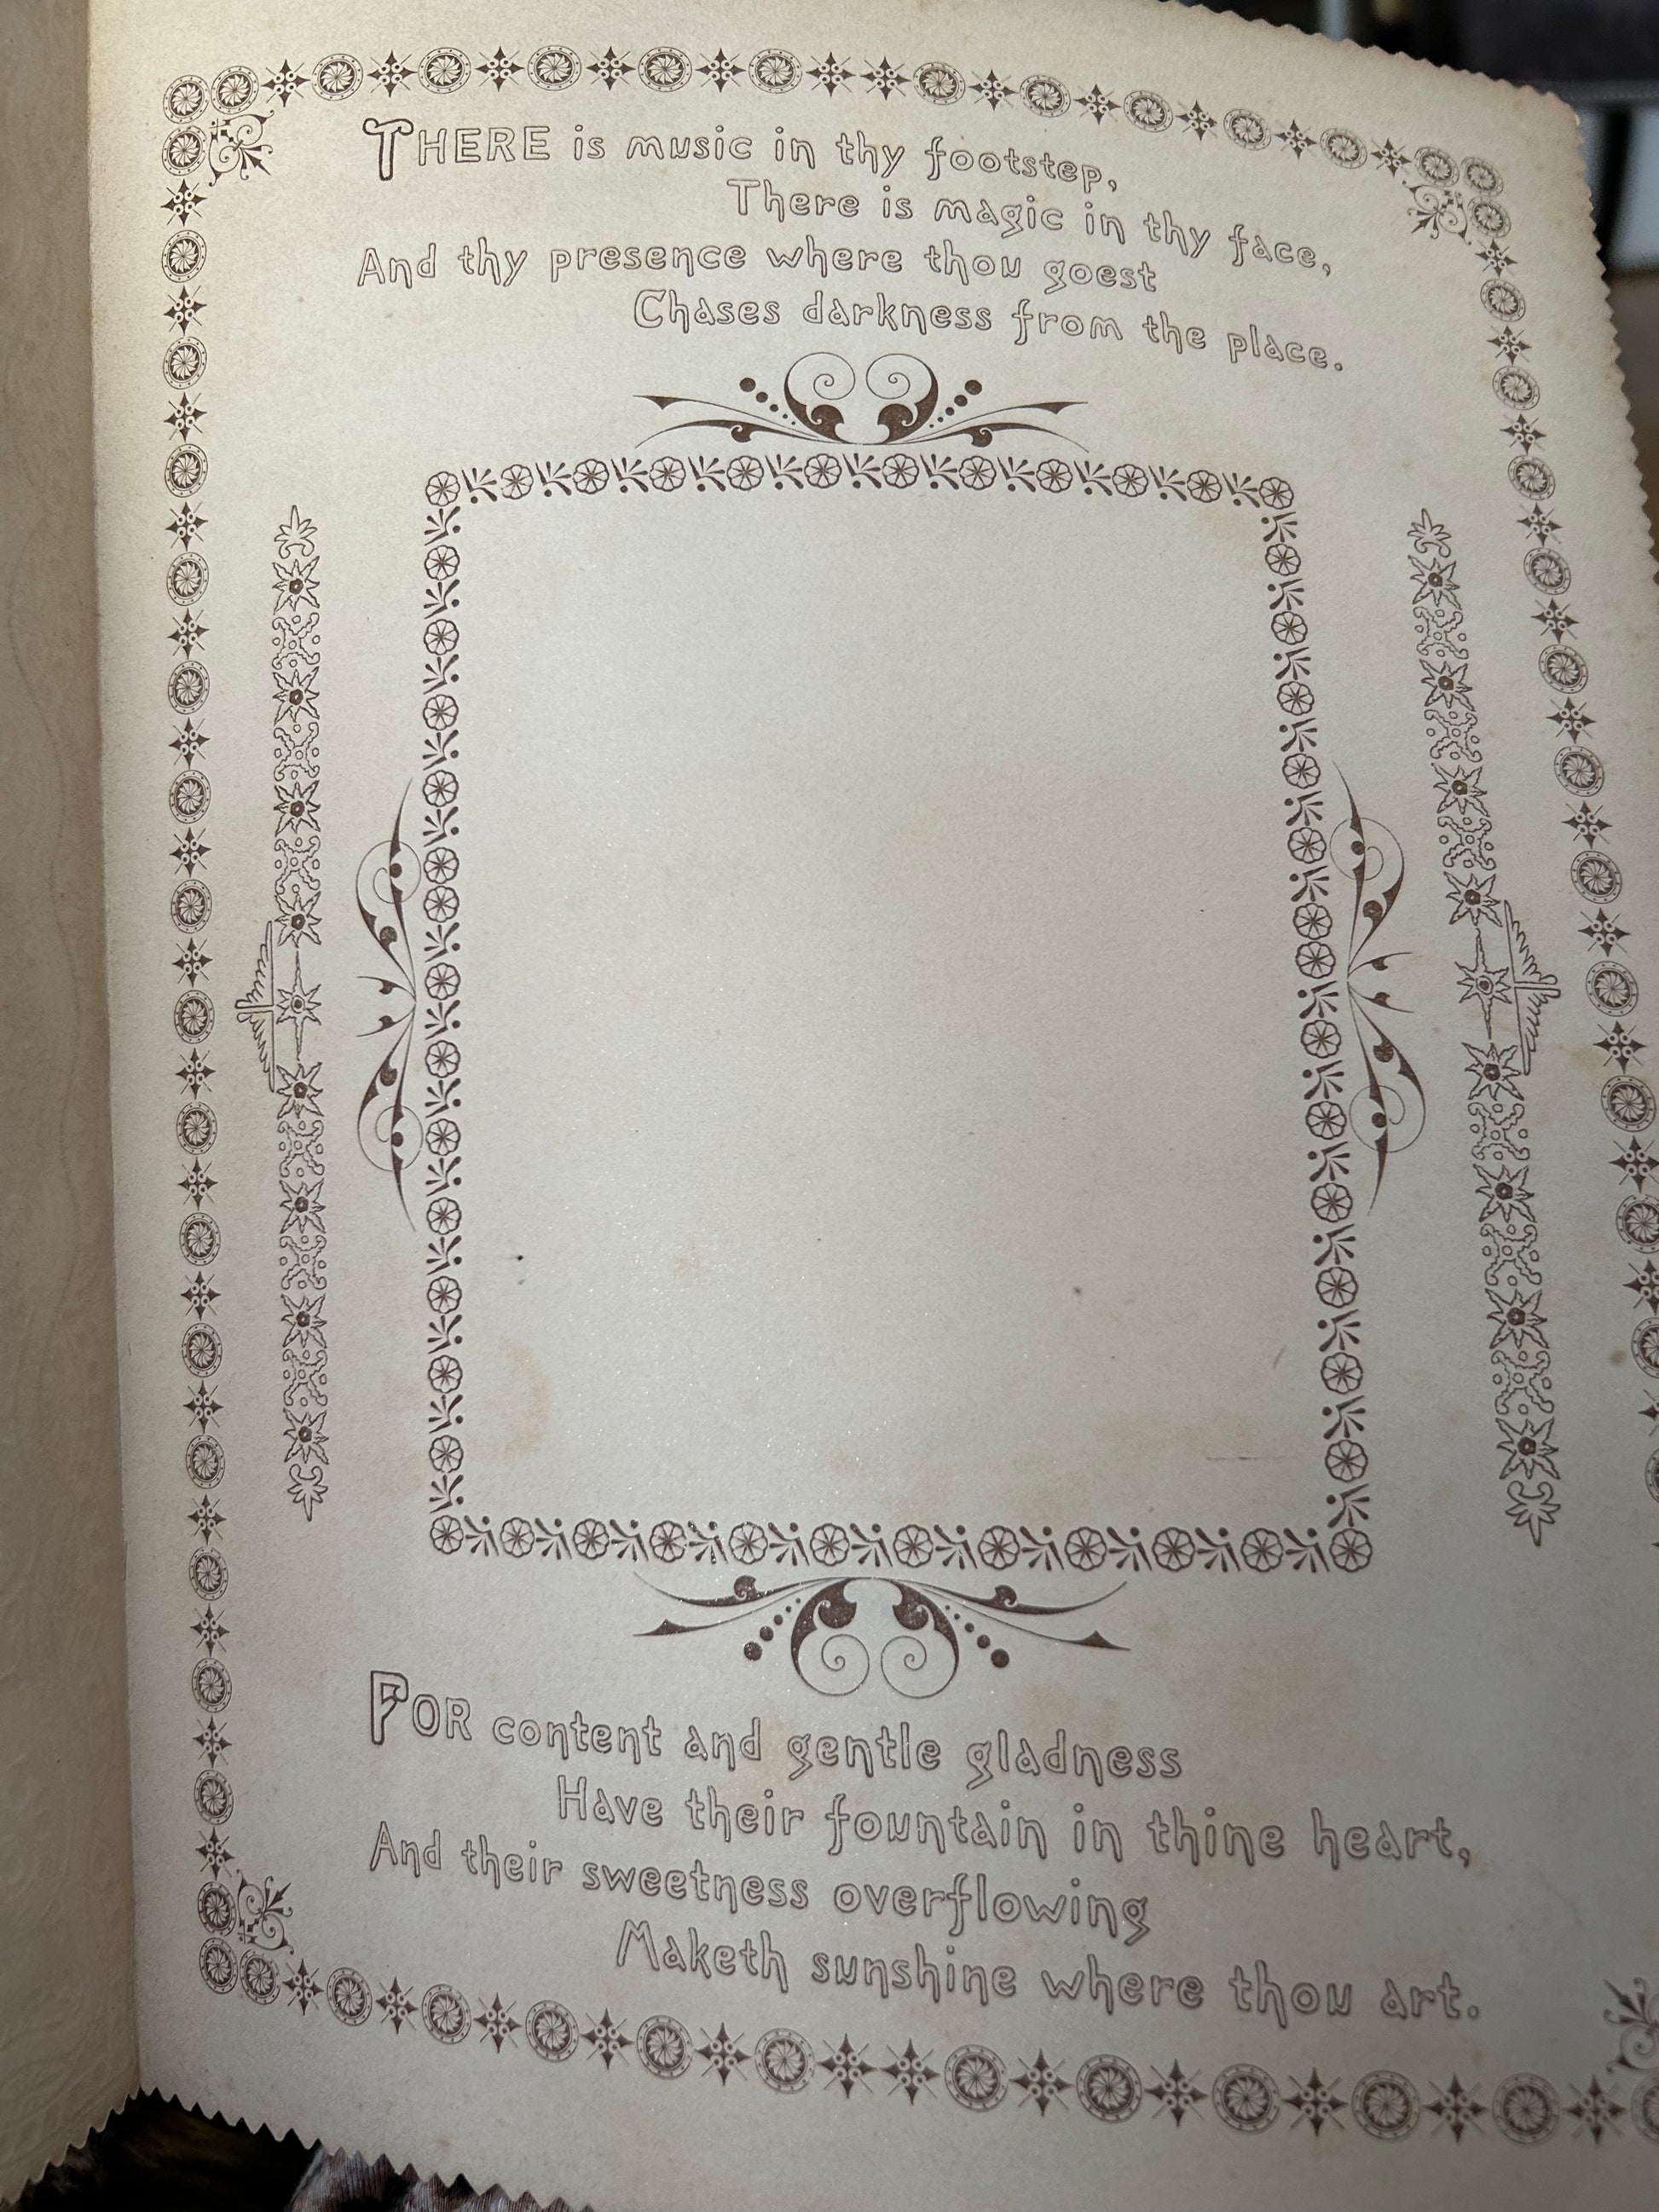 THERE is music in thy footstep,
There is magic in thy face,
And thy presence where thou goest
Chases darkness from the place.
FOR content and gentle gladness
Have their fountain in thine heart,
And their sweetness overflowing
Maketh sunshine where thou art.